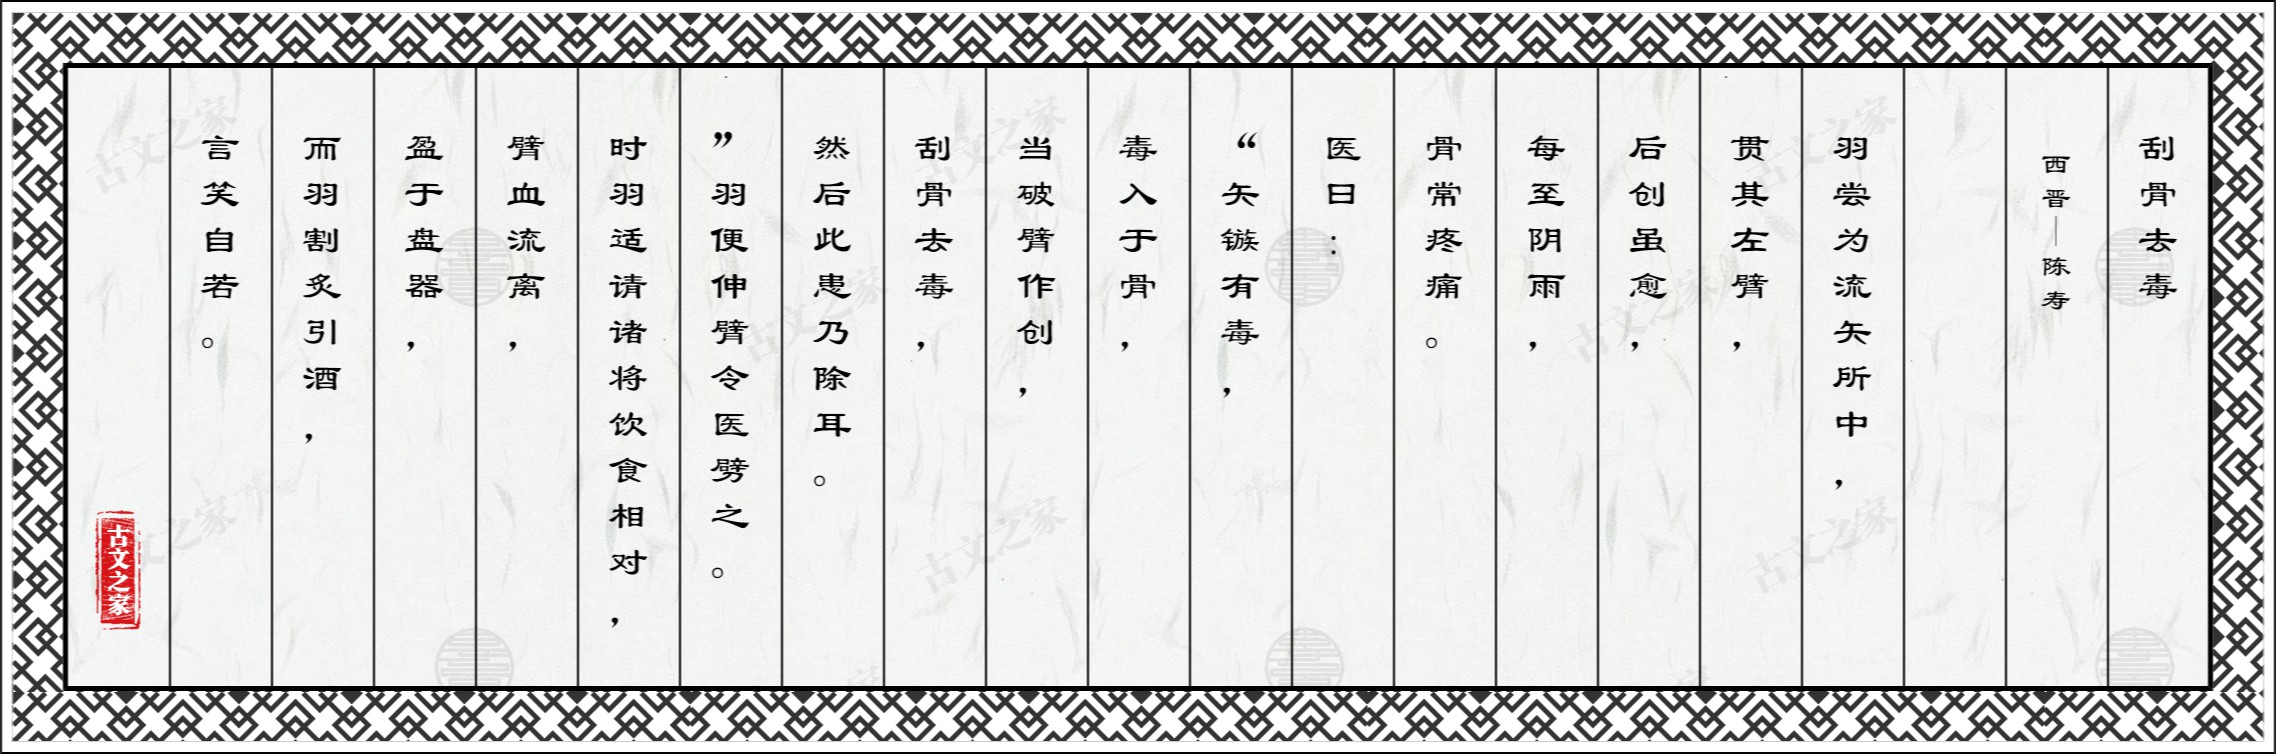 刮骨去毒
西晋—陈寿
羽尝为流矢所中，
贯其左臂，
后创虽愈，
每至阴雨，
骨常疼痛。
医曰：
“矢镞有毒，
毒入于骨，
当破臂作创，
刮骨去毒，
然后此患乃除耳。
”羽便伸臂令医劈之。
时羽适请诸将饮食相对，
臂血流离，
盈于盘器，
而羽割炙引酒，
言笑自若。
古文之家